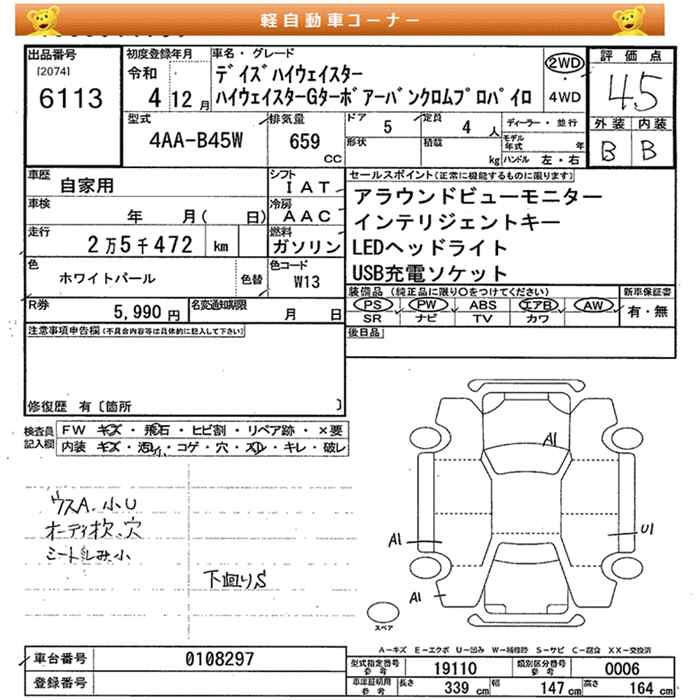 軽自動車コーナー
出品番号
[2074]
6113
初度登録年月
令和
4 12月
車名・グレード
デイズハイウェイスター
ハイウェイスターGターボアーバンクロムプロパイロ
2WD
・
4WD
評価点
4.5
外装 内装
B B
型式
4AA-B45W
排気量
659
cc
ドア 5 定員 4 人
形状 積載 kg
ディーラー・並行
モデル年式 年
ハンドル 左・右
車歴
自家用
シフト
IAT
車検
年 月( 日)
冷房
AAC
走行
2万5千472 km
燃料
ガソリン
色
ホワイトパール
色替
色コード
W13
R券
5,990円
名変通知期限
月 日
セールスポイント(正常に機能するものに限ります)
アラウンドビューモニター
インテリジェントキー
LEDヘッドライト
USB充電ソケット
装備品(純正品に限り○をつけてください)
PS PW ABS エアB AW
SR ナビ TV カワ
新車保証書
有・無
後日品
注意事項申告欄(不具合内容等は具体的に記入して下さい)
修復歴 有〔箇所 〕
検査員記入欄
FW キズ・飛石・ヒビ割・リペア跡・×要
内装 キズ・汚レ・コゲ・穴・スレ・キレ・破レ
ウスA.小U
穴
小
下廻りS
A1
A1
A1
U1
スペア
A-キズ E-エクボ U-凹み W-補修跡 S-サビ C-腐食 XX-交換済
車台番号
0108297
登録番号
型式指定番号
参考
19110
類別区分番号
参考
0006
車庫証明用
参考
長さ 339 cm 幅 147 cm 高さ 164 cm